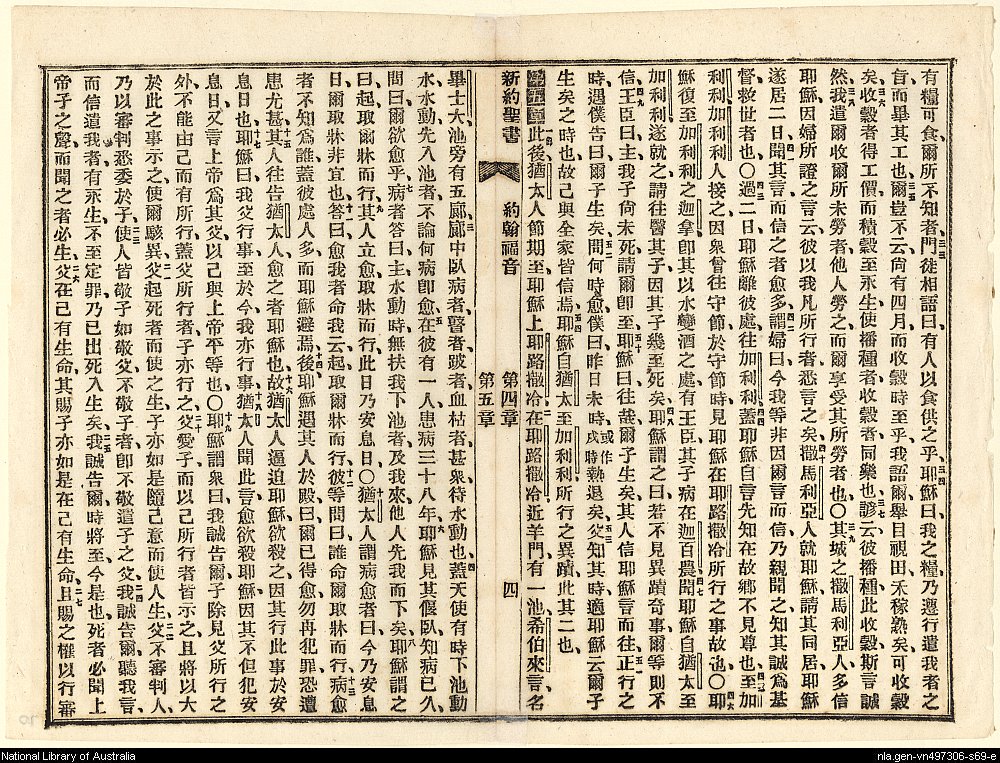 有糧可食、爾所不知者、門徒相語曰、有人以食供之乎、耶穌曰、我之糧、乃遵行遣我者之
旨、而畢其工也、爾豈不云、尙有四月而收穀時至乎、我語爾、舉目視田、禾稼熟矣、可收穀
矣、收穀者得工價、而積穀至永生、使播種者收穀者同樂也、諺云、彼播種、此收穀、斯言誠
然、我遣爾收爾所未勞者、他人勞之、而爾享受其所勞者也、〇其城之撒馬利亞人、多信
耶穌、因婦所證之言云、彼以我凡所行者悉言之矣、撒馬利亞人就耶穌、請其同居、耶穌
遂居二日、聞其言而信之者愈多、謂婦曰、今我等非因爾言而信、乃親聞之、知其誠爲基
督救世者也、〇過二日、耶穌離彼處、往加利利、蓋耶穌自言先知在故鄉、不見尊也、至加
利利、加利利人接之、因衆曾往守節、於守節時、見耶穌在耶路撒冷所行之事故也、〇耶
穌復至加利利之迦拿、卽其以水變酒之處、有王臣、其子病在迦百農、聞耶穌自猶太至
加利利、遂就之、請往醫其子、因其子幾至死矣、耶穌謂之曰、若不見異蹟奇事、爾等則不
信、王臣曰、主、我子尙未死、請爾卽至、耶穌曰、往哉、爾子生矣、其人信耶穌言而往、正行之
時、遇僕告曰、爾子生矣、問何時愈、僕曰、昨日未時、或作戌時熱退矣、父知其時、適耶穌云、爾子
生矣之時也、故己與全家皆信焉、耶穌自猶太至加利利、所行之異蹟、此其二也、
第五章 此後、猶太人節期至、耶穌上耶路撒冷、在耶路撒冷近羊門、有一池、希伯來言、名
新約聖書 約翰福音 第四章 第五章 四
畢士大、池旁有五廊、廊中臥病者、瞽者、跛者、血枯者甚衆、待水動也、蓋天使有時下池動
水、水動先入池者、不論何病卽愈、在彼有一人、患病三十八年、耶穌見其偃臥、知病已久、
問曰、爾欲愈乎、病者答曰、主、水動時、無扶我下池者、及我來、他人先我而下矣、耶穌謂之
曰、起、取爾牀而行、其人立愈、取牀而行、此日乃安息日、〇猶太人謂病愈者曰、今乃安息
日、爾取牀非宜也、答曰、愈我者、命我云、起、取爾牀而行、彼等問曰、誰命爾取牀而行、病愈
者不知爲誰、蓋彼處人多、而耶穌避焉、後耶穌遇其人於殿、曰、爾已得愈、勿再犯罪、恐遭
患尤甚、其人往告猶太人、愈之者耶穌也、故猶太人逼迫耶穌、欲殺之、因其行此事於安
息日也、耶穌曰、我父行事至於今、我亦行事、猶太人聞此言、愈欲殺耶穌、因其不但犯安
息日、又言上帝爲其父、以己與上帝平等也、〇耶穌謂衆曰、我誠告爾、子除見父所行之
外、不能由己而有所行、蓋父所行者、子亦行之、父愛子、而以己所行者、皆示之、且將以大
於此之事示之、使爾駭異、父起死者而使之生、子亦如是、隨己意而使人生、父不審判人、
乃以審判悉委於子、使人皆敬子、如敬父、不敬子者、卽不敬遣子之父、我誠告爾、聽我言、
而信遣我者、有永生、不至定罪、乃已出死入生矣、我誠告爾、時將至、今是也、死者必聞上
帝子之聲、而聞之者必生、父在己有生命、其賜子亦如是、在己有生命、且賜之權、以行審
National Library of Australia
nla.gen-vn497306-s69-e